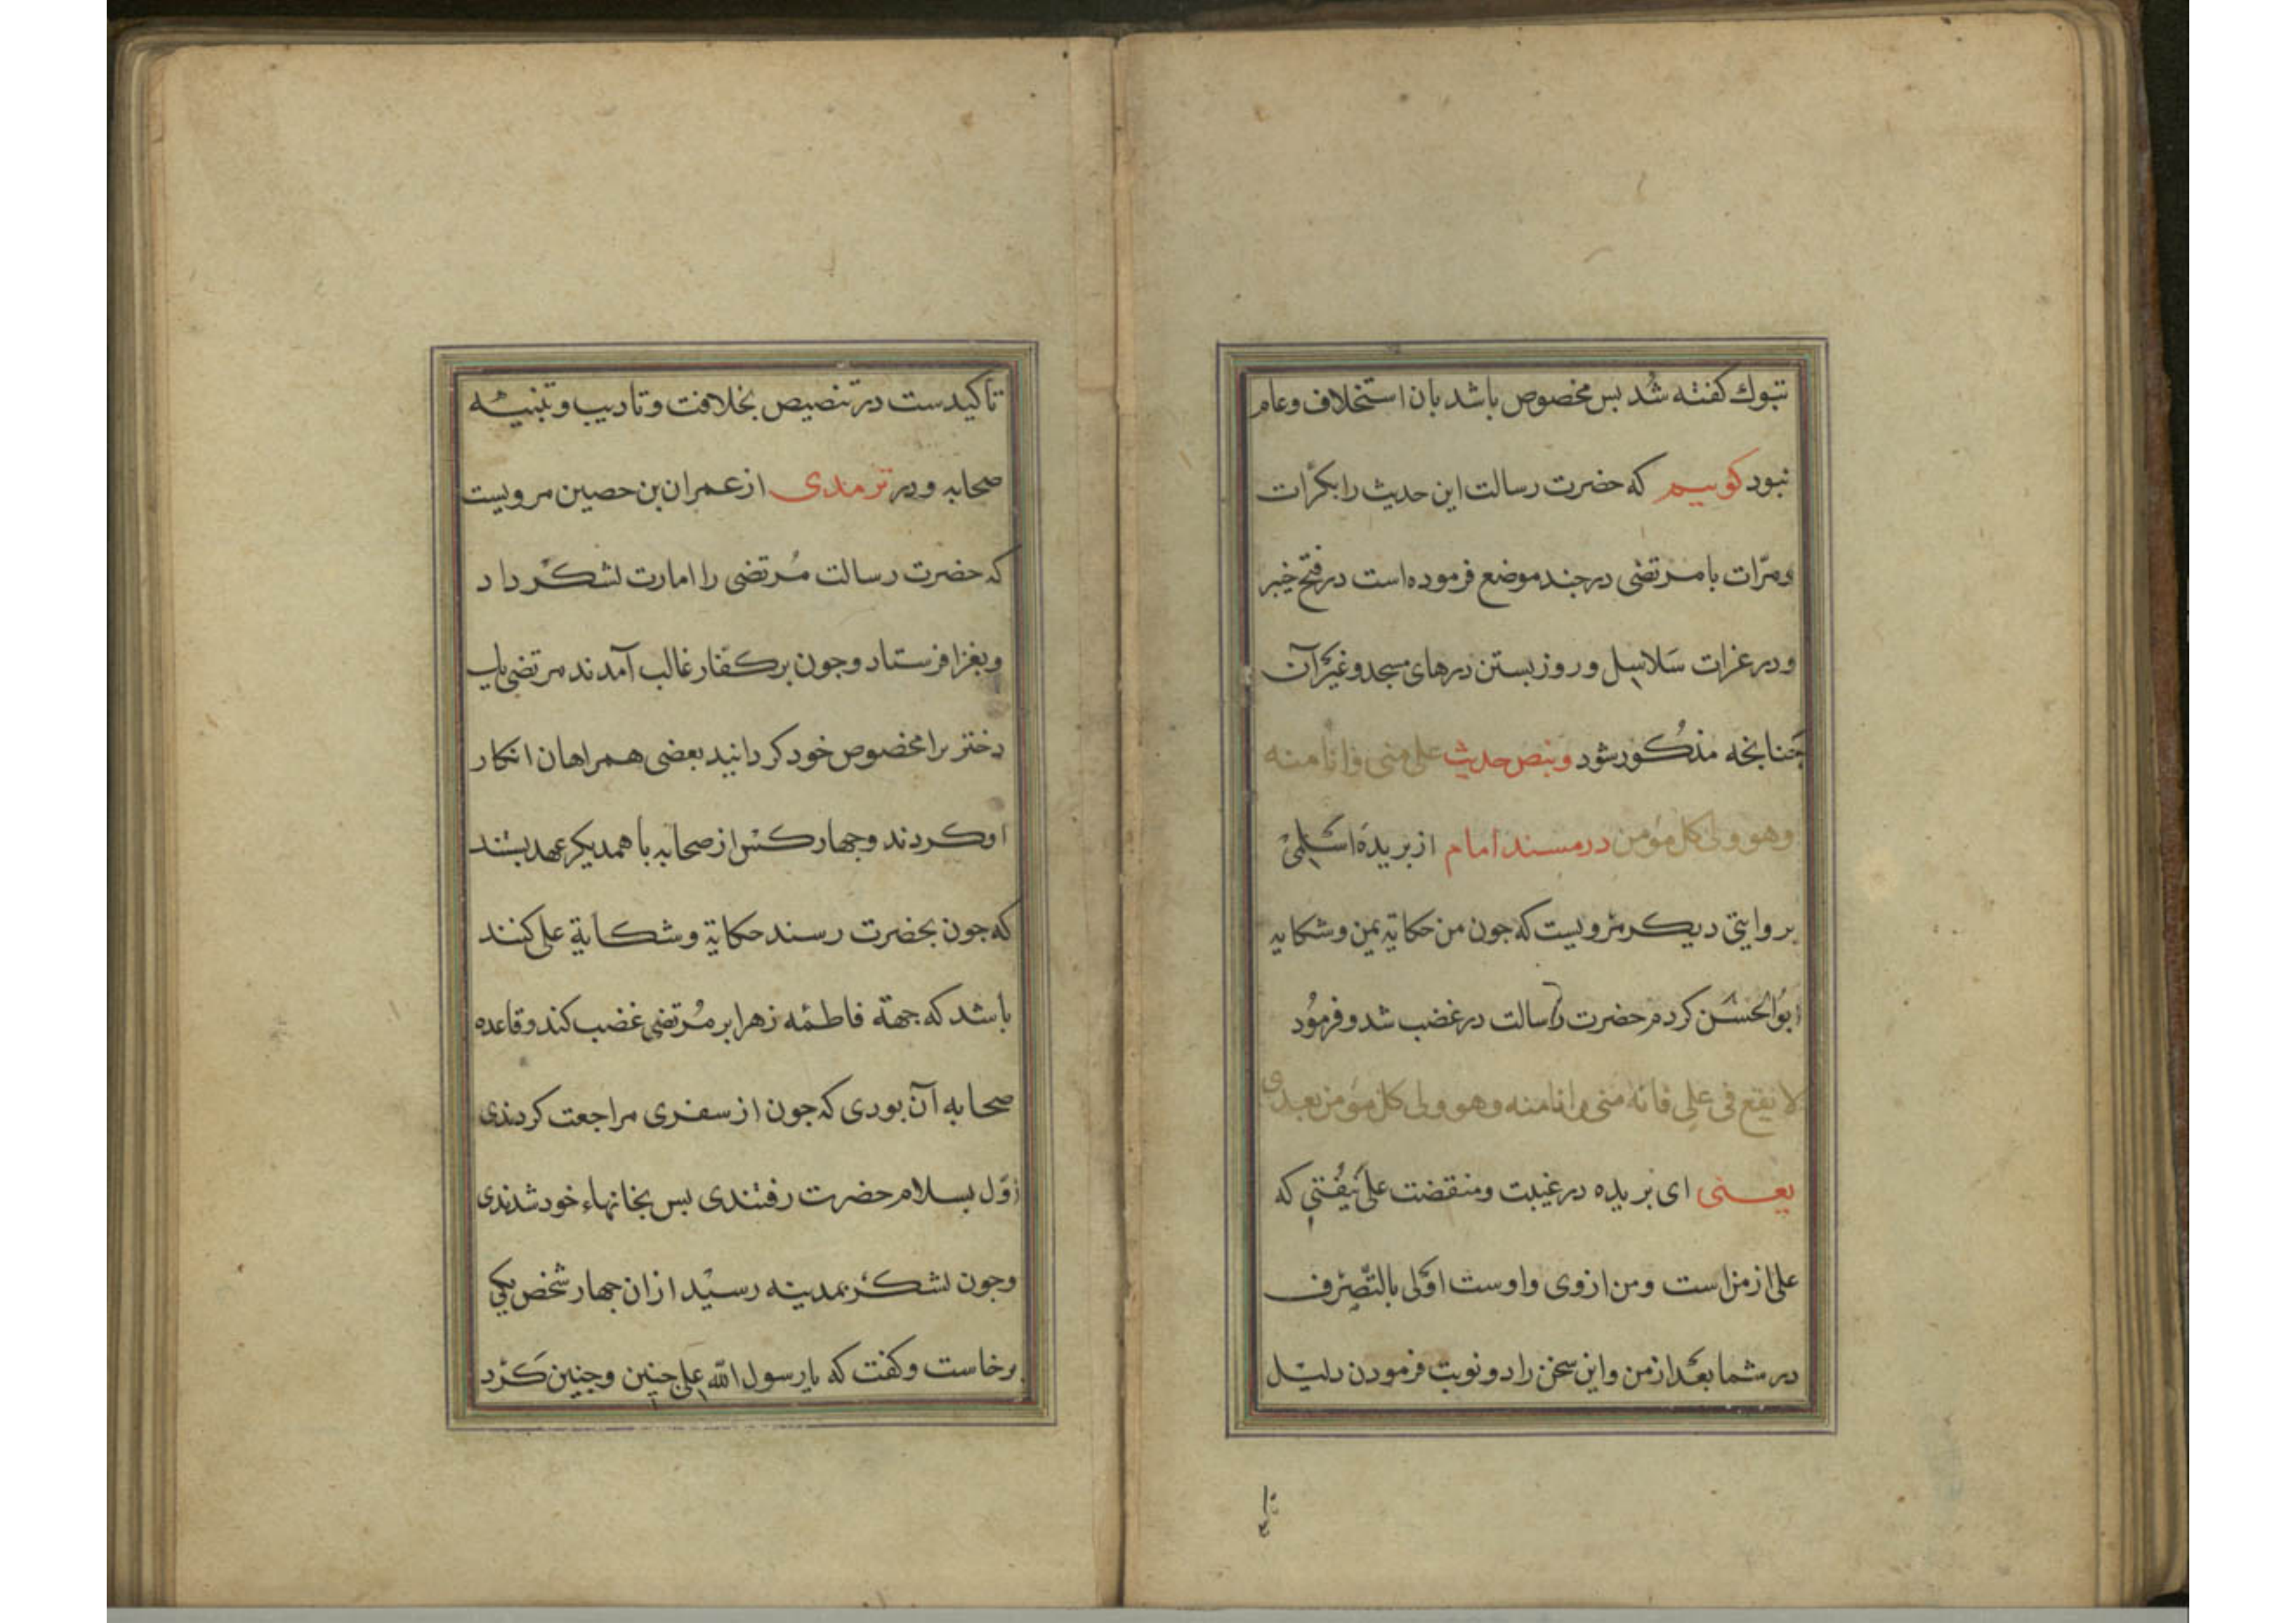 تبوك كفته شُد بس مخصوص باشد بان استخلاف وعام
نبود كوییم كه حضرت رسالت این حدیث را بكرّات
ومرّات با مرتضی در جند موضع فرموده است در فتح خیبر
ودر غزات سَلاسِل وروز بستن درهای مسجد وغیر آن
جنانجه مذكور شود وبنص حدیث علی منی وانا منه
وهو ولی كل مؤمن در مسند امام از بریدهٔ اسْلمی
بروایتی دیكر مرویست كه جون من حكایة یمن وشكایه
ابوُالحسَن كردم حضرت رسالت در غضب شد وفرموُد
لا تقع فی علی فانه منی وانا منه وهو ولی كل مؤمن بعدی
یعنی ای بریده در غیبت ومنقضت علی نیُفتی كه
علی از من است ومن از وی واوست اَولی بالتّصرّف
در شما بعد از من واین سخن را دو نوبت فرمودن دلیل
تا كید
تاكیدست در تنصیص بخلافت وتادیب وتنبیه
صحابه ودر ترمذی از عمران بن حصین مرویست
كه حضرت رسالت مُرتضی را امارت لشكر داد
وبغزا فرستاد وجون بر كفّار غالب آمدند مرتضی یك
دختر را مخصوص خود كردانید بعضی همراهان انكار
او كردند وجهار كس از صحابه با همدیكر عهد بستند
كه جون بحضرت رسند حكایة وشكایة علی كنند
باشد كه جهة فاطمه زهرا بر مُرتضی غضب كند وقاعده
صحابه آن بودی كه جون از سفری مراجعت كردندی
اوّل بسلام حضرت رفتندی بس بخانهاء خود شدندی
وجون لشكر بمدینه رسید از ان جهار شخص یكی
برخاست وكفت كه یا رسول اللّه علی جنین وجنین كَرد